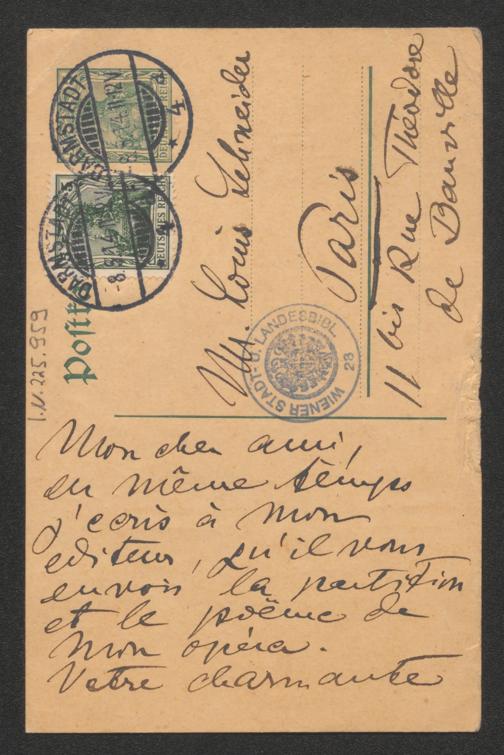 Postk
DEUTSCHES REICH
DEUTSCHES REICH
DARMSTADT
DARMSTADT
Mr. Louis Schneider
Paris
11 bis Rue Théodore
de Banville
WIENER STADT- U. LANDESBIBL.
23
I.N. 225.959
Mon cher ami,
en même temps
j'ecris à mon
editeur, qu'il vous
envois la partition
et le poëme de
mon opéra.
Votre charmante